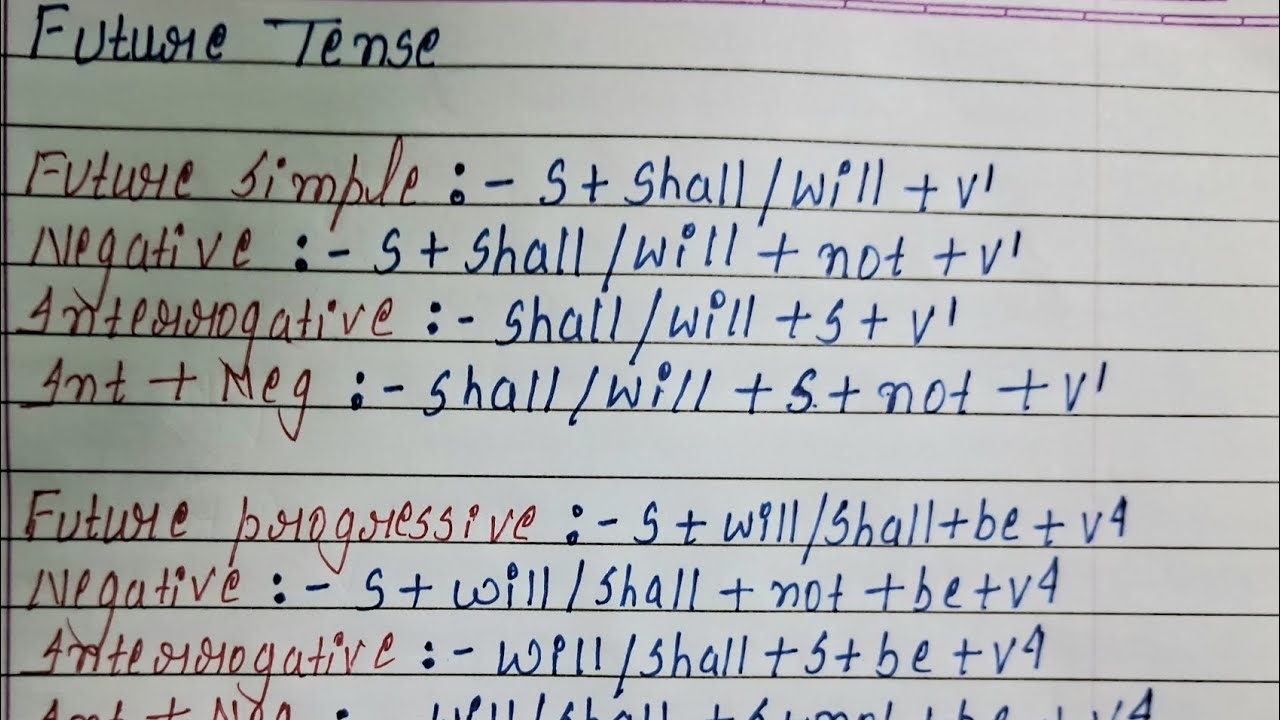 Future Tense
Future Simple :- S + Shall/will + v¹
Negative :- S + Shall/will + not + v¹
Interrogative :- Shall/will + S + v¹
Int + Neg :- Shall/will + S + not + v¹
Future progressive :- S + will/Shall + be + v4
Negative :- S + will/Shall + not + be + v4
Interrogative :- will/Shall + S + be + v4
Int + Neg :- will/Shall + S + not + be + v4